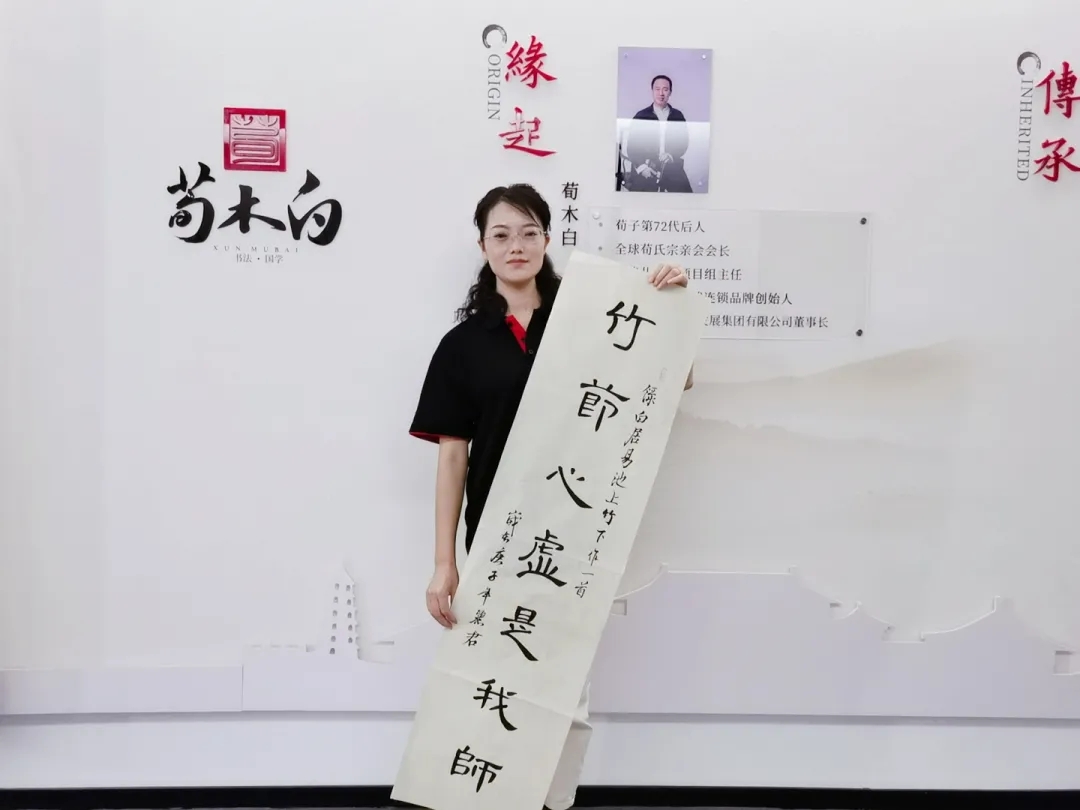 荀木白
XUN MUBAI
书法·国学
緣起
ORIGIN
荀木白
荀子第72代后人
全球荀氏宗亲会会长
项目组主任
连锁品牌创始人
发展集团有限公司董事长
傳承
INHERITED
竹節心虛是我師
錄白居易池上竹下作一首
庚子年